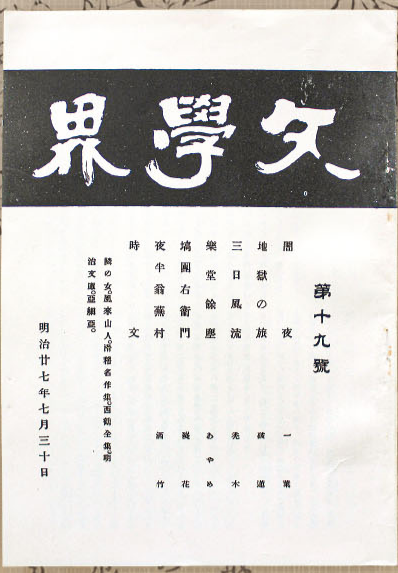 文學界
第十九號
闇夜 一葉
地獄の旅
三日風流 禿木
樂堂餘塵 あやめ
塙團右衞門 殘花
夜半翁蕪村 洒竹
時文
隣の女。風來山人。滑稽名作集。西鶴全集。明
治文庫。亞細亞。
明治廿七年七月三十日